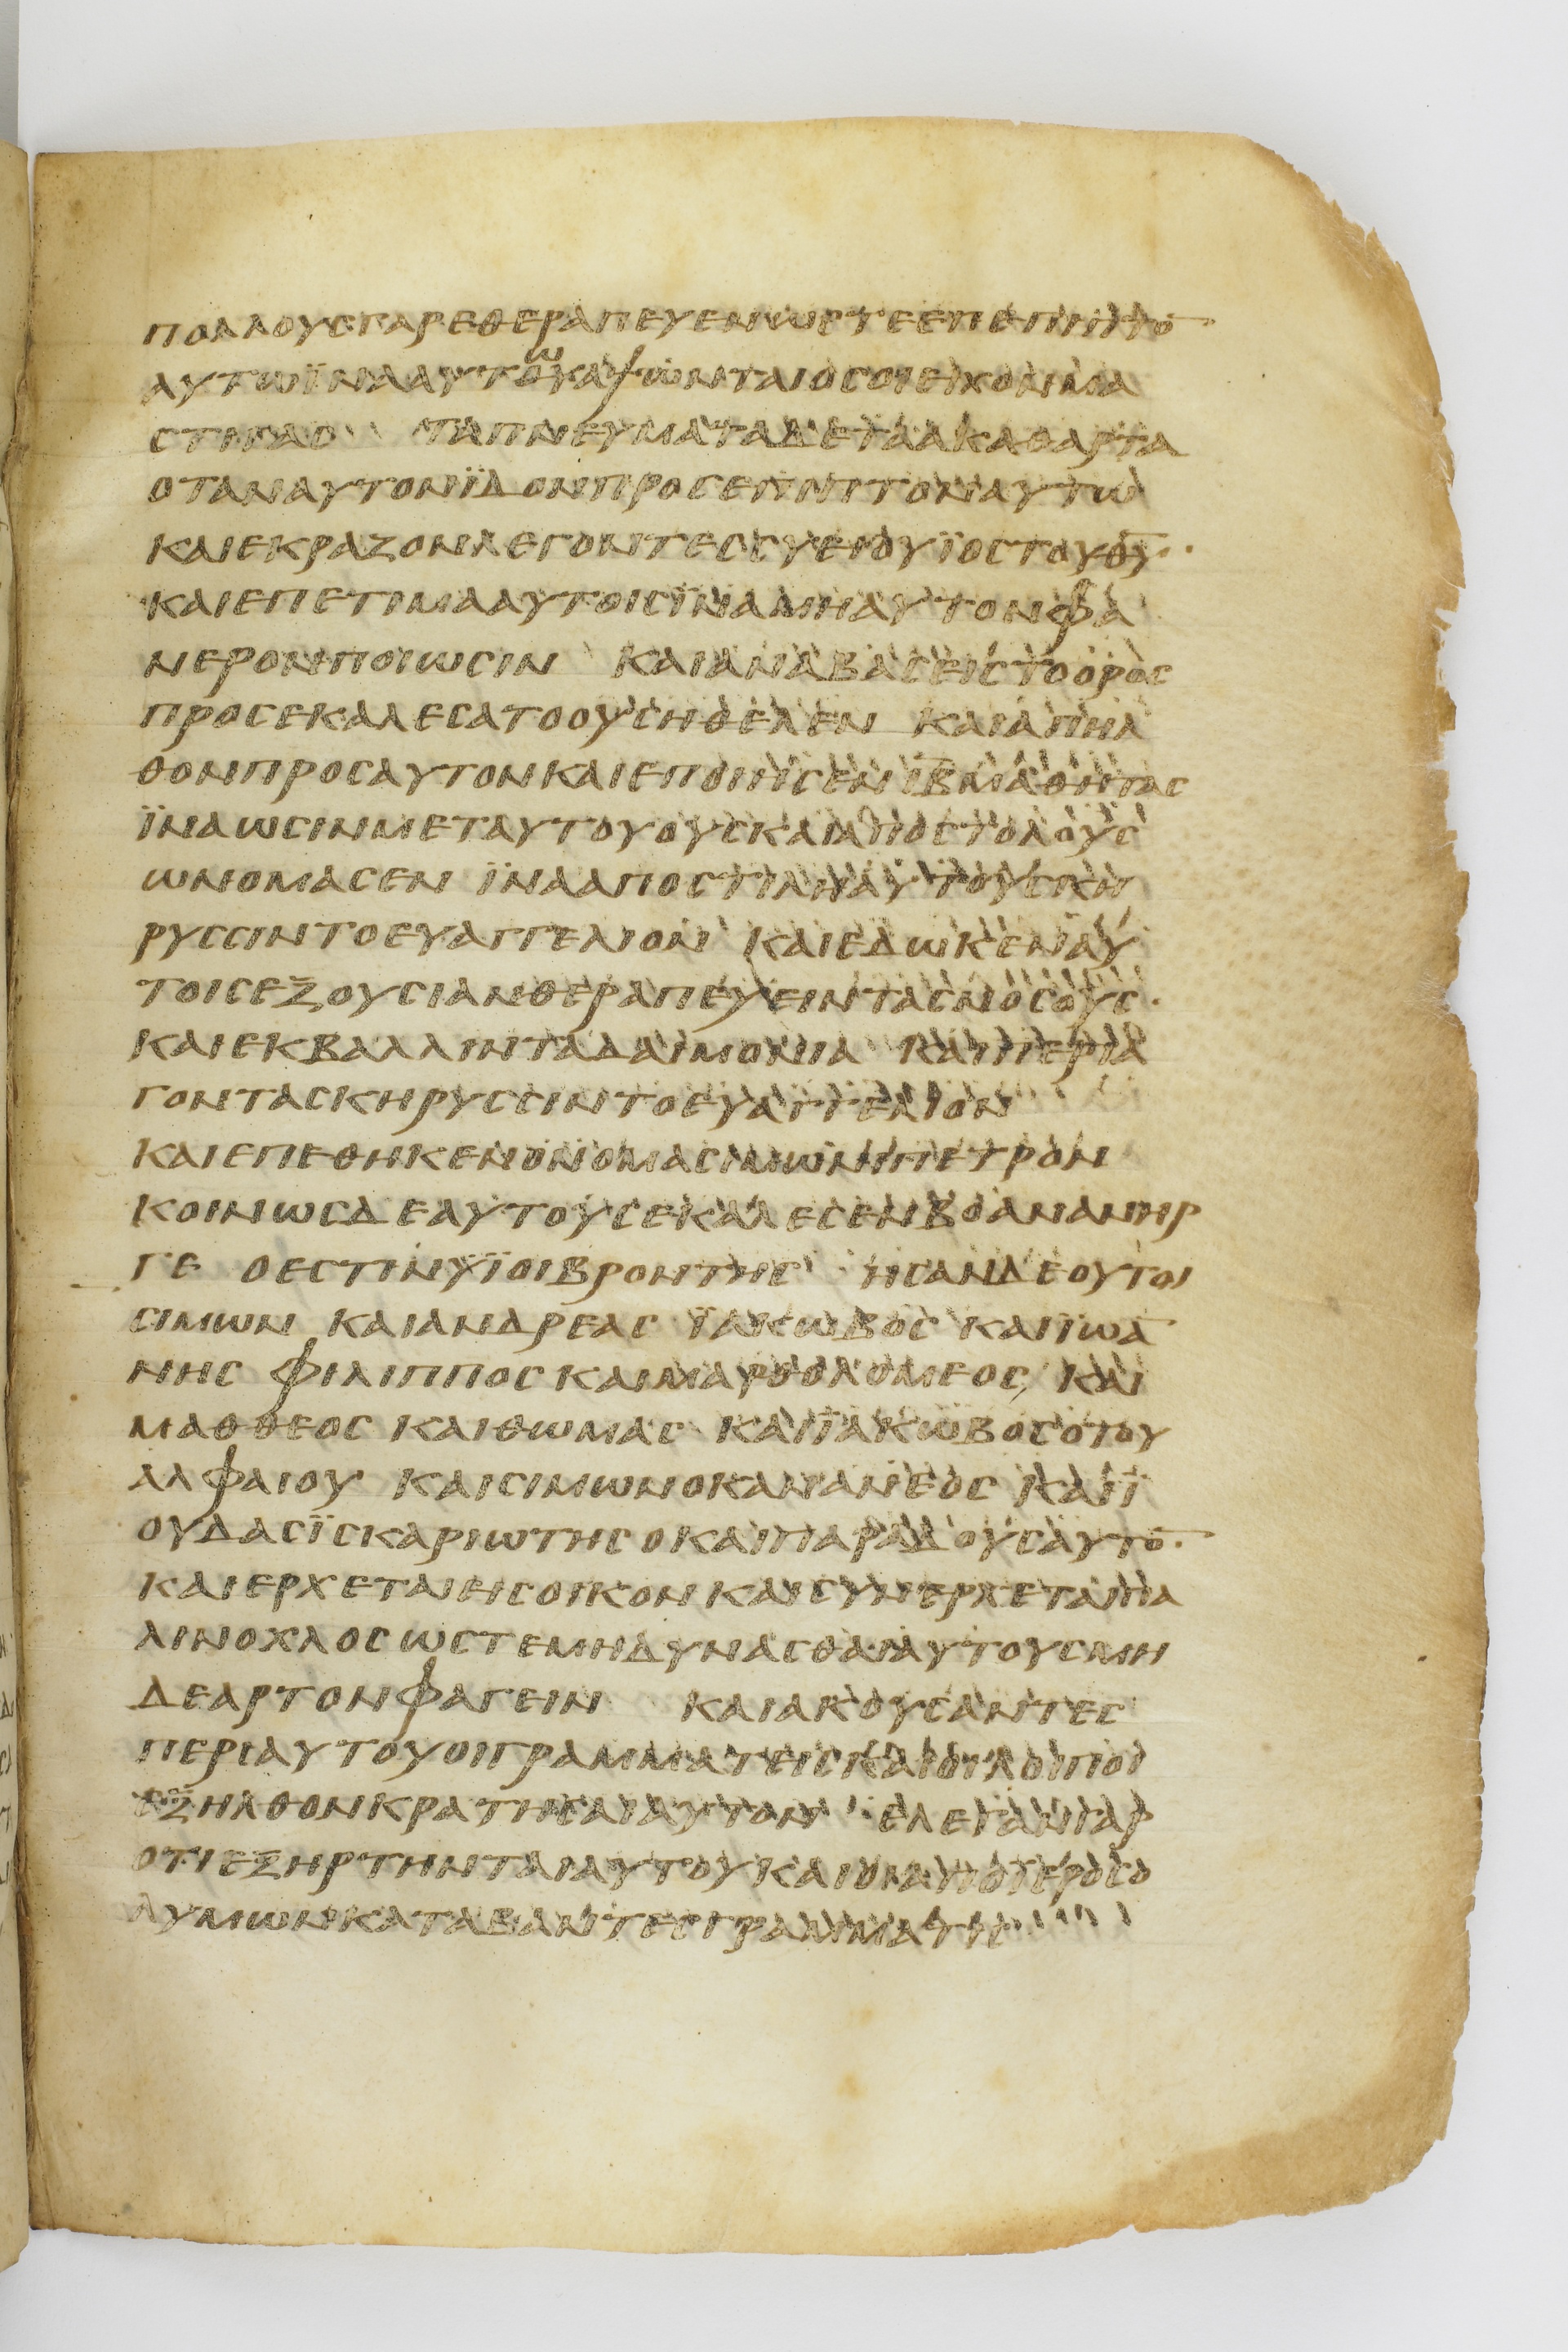 ΠΟΛΛΟΥϹΓΑΡΕΘΕΡΑΠΕΥΕΝΩϹΤΕΕΠΕΠΙΠΤΟ̅
ΑΥΤΩΪΝΑΑΥΤΟΥΑΨΩΝΤΑΙΟϹΟΙΕΙΧΟΝΜΑ
ϹΤΙΓΑϹ ΤΑΠΝΕΥΜΑΤΑΔΕΤΑΑΚΑΘΑΡΤΑ
ΟΤΑΝΑΥΤΟΝΪΔΟΝΠΡΟϹΕΠΙΠΤΟΝΑΥΤΩ
ΚΑΙΕΚΡΑΖΟΝΛΕΓΟΝΤΕϹϹΥΕΙΟΥΪΟϹΤΟΥΘ̅Υ̅·
ΚΑΙΕΠΕΤΙΜΑΑΥΤΟΙϹΪΝΑΜΗΑΥΤΟΝΦΑ
ΝΕΡΟΝΠΟΙΩϹΙΝ ΚΑΙΑΝΑΒΑϹΕΙϹΤΟΟΡΟϹ
ΠΡΟϹΕΚΑΛΕϹΑΤΟΟΥϹΗΘΕΛΕΝ ΚΑΙΑΠΗΛ
ΘΟΝΠΡΟϹΑΥΤΟΝΚΑΙΕΠΟΙΗϹΕΝΙ̅Β̅ΜΑΘΗΤΑϹ
ΪΝΑΩϹΙΝΜΕΤΑΥΤΟΥΟΥϹΚΑΙΑΠΟϹΤΟΛΟΥϹ
ΩΝΟΜΑϹΕΝ ΪΝΑΑΠΟϹΤΙΛΗΑΥΤΟΥϹΚΗ
ΡΥϹϹΙΝΤΟΕΥΑΓΓΕΛΙΟΝ ΚΑΙΕΔΩΚΕΝΑΥ
ΤΟΙϹΕΞΟΥϹΙΑΝΘΕΡΑΠΕΥΕΙΝΤΑϹΝΟϹΟΥϹ·
ΚΑΙΕΚΒΑΛΛΙΝΤΑΔΑΙΜΟΝΙΑ ΚΑΙΠΕΡΙΑ
ΓΟΝΤΑϹΚΗΡΥϹϹΙΝΤΟΕΥΑΓΓΕΛΙΟΝ
ΚΑΙΕΠΕΘΗΚΕΝΟΝΟΜΑϹΙΜΩΝΙΠΕΤΡΟΝ
ΚΟΙΝΩϹΔΕΑΥΤΟΥϹΕΚΑΛΕϹΕΝΒΟΑΝΑΝΗΡ
ΓΕ ΟΕϹΤΙΝΥΪΟΙΒΡΟΝΤΗϹ ΗϹΑΝΔΕΟΥΤΟΙ
ϹΙΜΩΝ ΚΑΙΑΝΔΡΕΑϹ ΪΑΚΩΒΟϹ ΚΑΙΪΩΑ
ΝΗϹ ΦΙΛΙΠΠΟϹΚΑΙΜΑΡΘΟΛΟΜΕΟϹ ΚΑΙ
ΜΑΘΘΕΟϹ ΚΑΙΘΩΜΑϹ ΚΑΙΪΑΚΩΒΟϹΟΤΟΥ
ΑΛΦΑΙΟΥ ΚΑΙϹΙΜΩΝΟΚΑΝΑΝΕΟϹ ΚΑΙΪ
ΟΥΔΑϹΪϹΚΑΡΙΩΤΗϹΟΚΑΙΠΑΡΑΔΟΥϹΑΥΤΟ̅·
ΚΑΙΕΡΧΕΤΑΙΕΙϹΟΙΚΟΝΚΑΙϹΥΝΕΡΧΕΤΑΙΠΑ
ΛΙΝΟΧΛΟϹΩϹΤΕΜΗΔΥΝΑϹΘΑΙΑΥΤΟΥϹΜΗ
ΔΕΑΡΤΟΝΦΑΓΕΙΝ ΚΑΙΑΚΟΥϹΑΝΤΕϹ
ΠΕΡΙΑΥΤΟΥΟΙΓΡΑΜΜΑΤΕΙϹΚΑΙΟΙΛΟΙΠΟΙ
ΕΞΗΛΘΟΝΚΡΑΤΗϹΑΙΑΥΤΟΝ ΕΛΕΓΑΝΓΑΡ
ΟΤΙΕΞΗΡΤΗΝΤΑΙΑΥΤΟΥΚΑΙΟΙΑΠΟΙΕΡΟϹΟ
ΛΥΜΩΝΚΑΤΑΒΑΝΤΕϹΓΡΑΜΜΑΤΙϹ